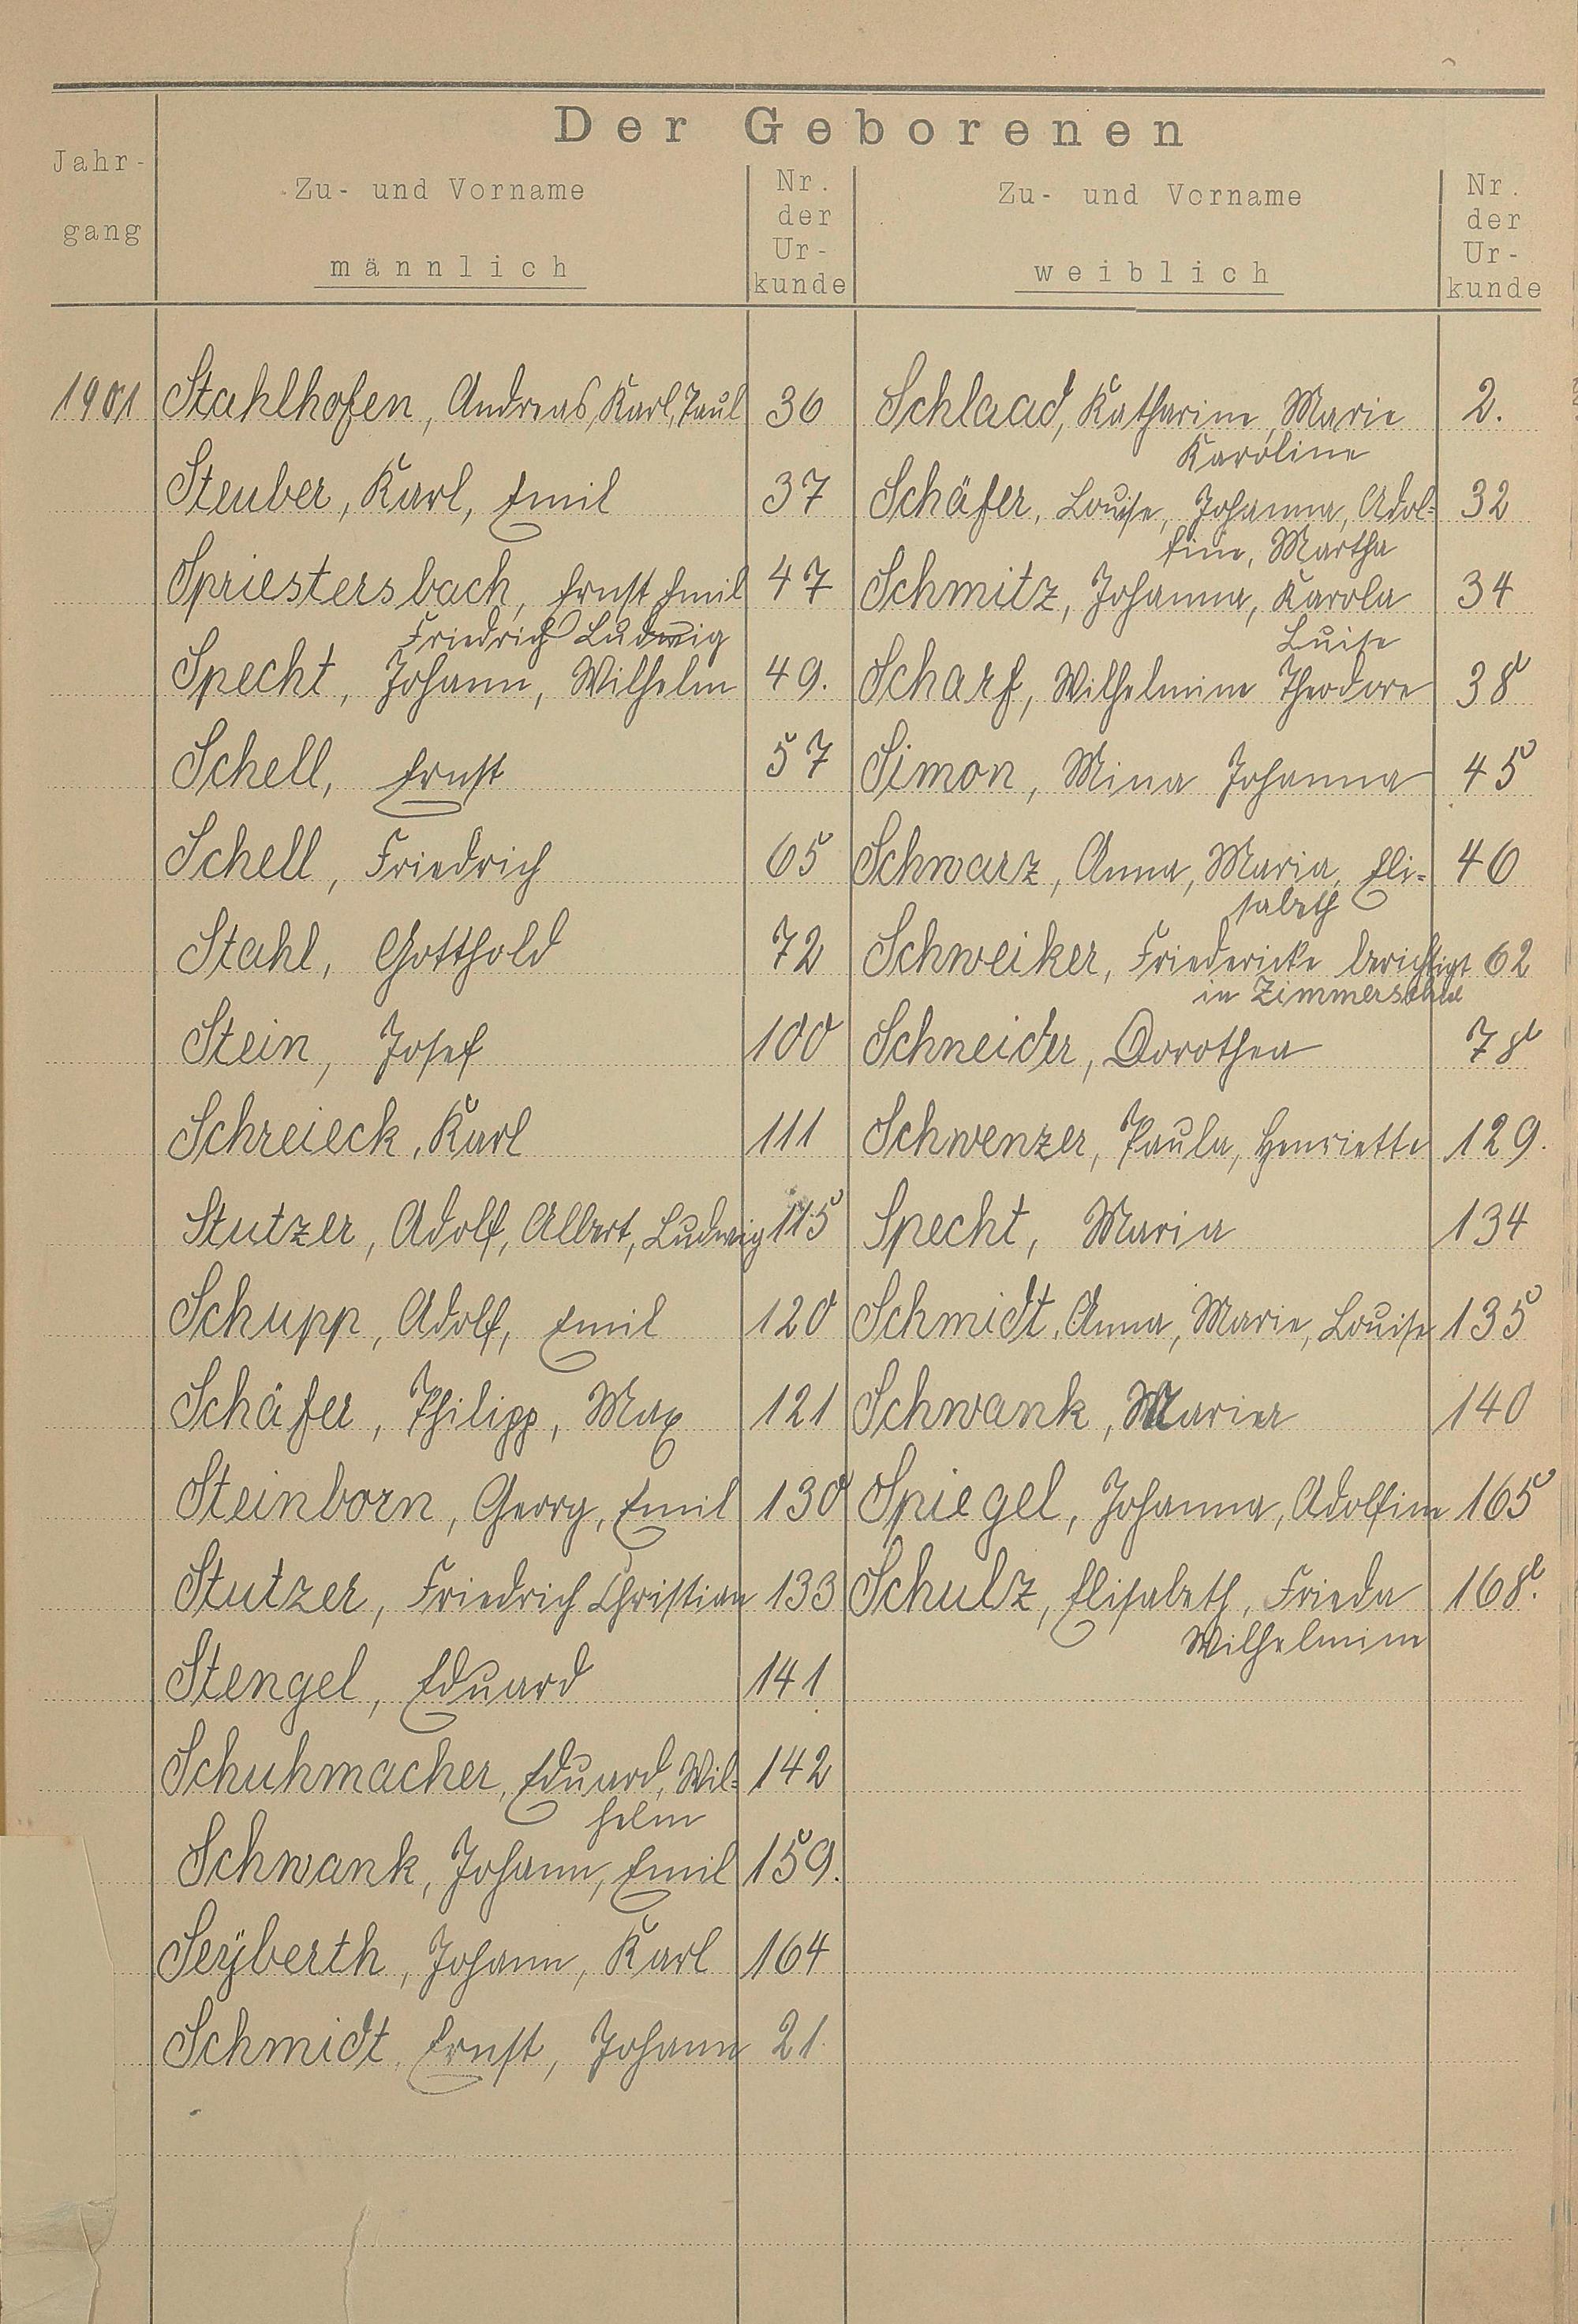 Der Geborenen
Jahr-
gang
Zu- und Vorname
männlich
Nr.
der
Ur-
kunde
Zu- und Vorname
weiblich
Nr.
der
Ur-
kunde
1901 Stahlhofen, Andreas, Karl, Paul 36 Schlaad, Katharine, Marie 2.
Karoline
Steuber, Karl, Emil 37 Schäfer, Louise, Johanna, Adol- 32
fine, Martha
Spriestersbach, Ernst Emil 47 Schmitz, Johanna, Karola 34
Friedrich Ludwig Luise
Specht, Johann, Wilhelm 49. Scharf, Wilhelmine Theodore 38
Schell, Ernst 57 Simon, Mina Johanna 45
Schell, Friedrich 65 Schwarz, Anna, Maria, Eli- 46
sabeth
Stahl, Gotthold 72 Schweiker, Friedericke berichtigt 62
in
Stein, Josef 100 Schneider, Dorothea 78
Schreieck, Karl 111 Schwenzer, Paula, Henriette 129.
Stutzer, Adolf, Albert, Ludwig 115 Specht, Maria 134
Schupp, Adolf, Emil 120 Schmidt, Anna, Marie, Louise 135
Schäfer, Philipp, Max 121 Schwank, Maria 140
Steinborn, Georg, Emil 130 Spiegel, Johanna, Adolfine 165
Stutzer, Friedrich Christian 133 Schulz, Elisabeth, Frieda 168.
Wilhelmine
Stengel, Eduard 141
Schuhmacher, Eduard, Wil- 142
helm
Schwank, Johann, Emil 159.
Seÿberth, Johann, Karl 164
Schmidt, Ernst, Johann 21